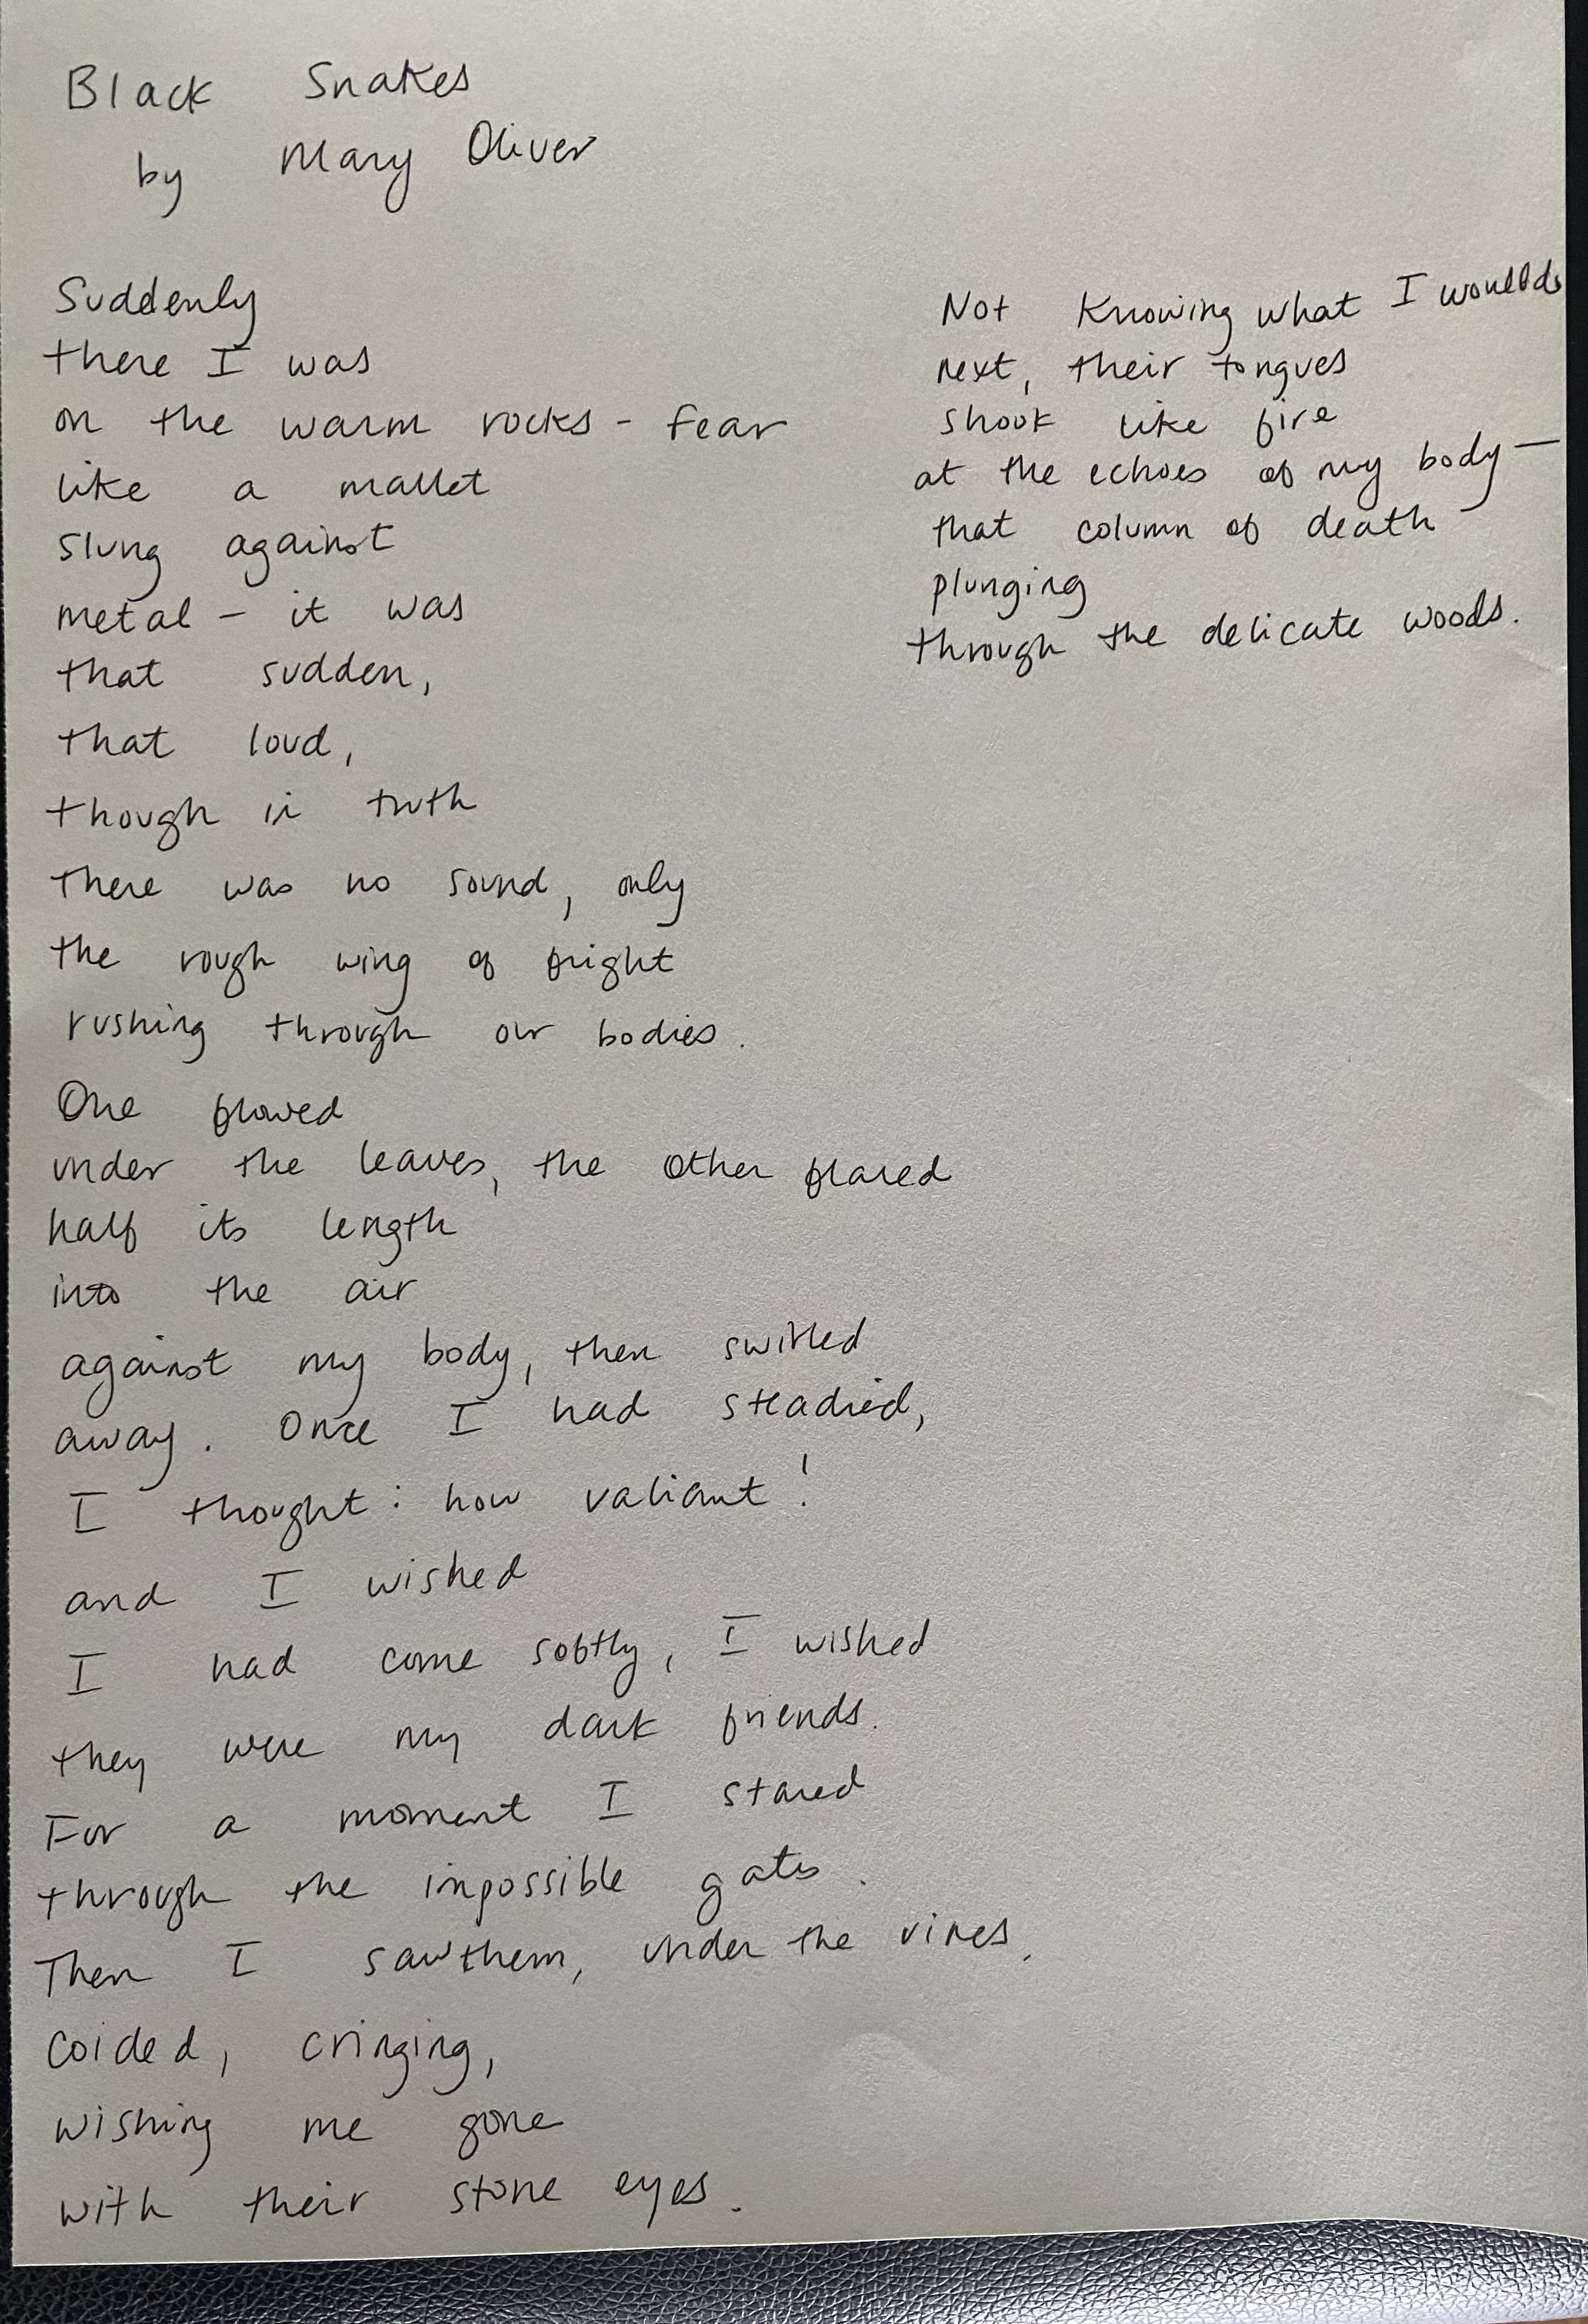 Black Snakes
by Mary Oliver
Suddenly
there I was
on the warm rocks - fear
like a mallet
slung against
metal - it was
that sudden,
that loud,
though in truth
there was no sound, only
the rough wing of fright
rushing through our bodies.
One flowed
under the leaves, the other flared
half its length
into the air
against my body, then swirled
away. Once I had steadied,
I thought: how valiant!
and I wished
I had come softly, I wished
they were my dark friends.
For a moment I stared
through the impossible gates.
Then I saw them, under the vines,
coided, cringing,
wishing me gone
with their stone eyes.
Not knowing what I would do
next, their tongues
shook like fire
at the echoes of my body—
that column of death
plunging
through the delicate woods.